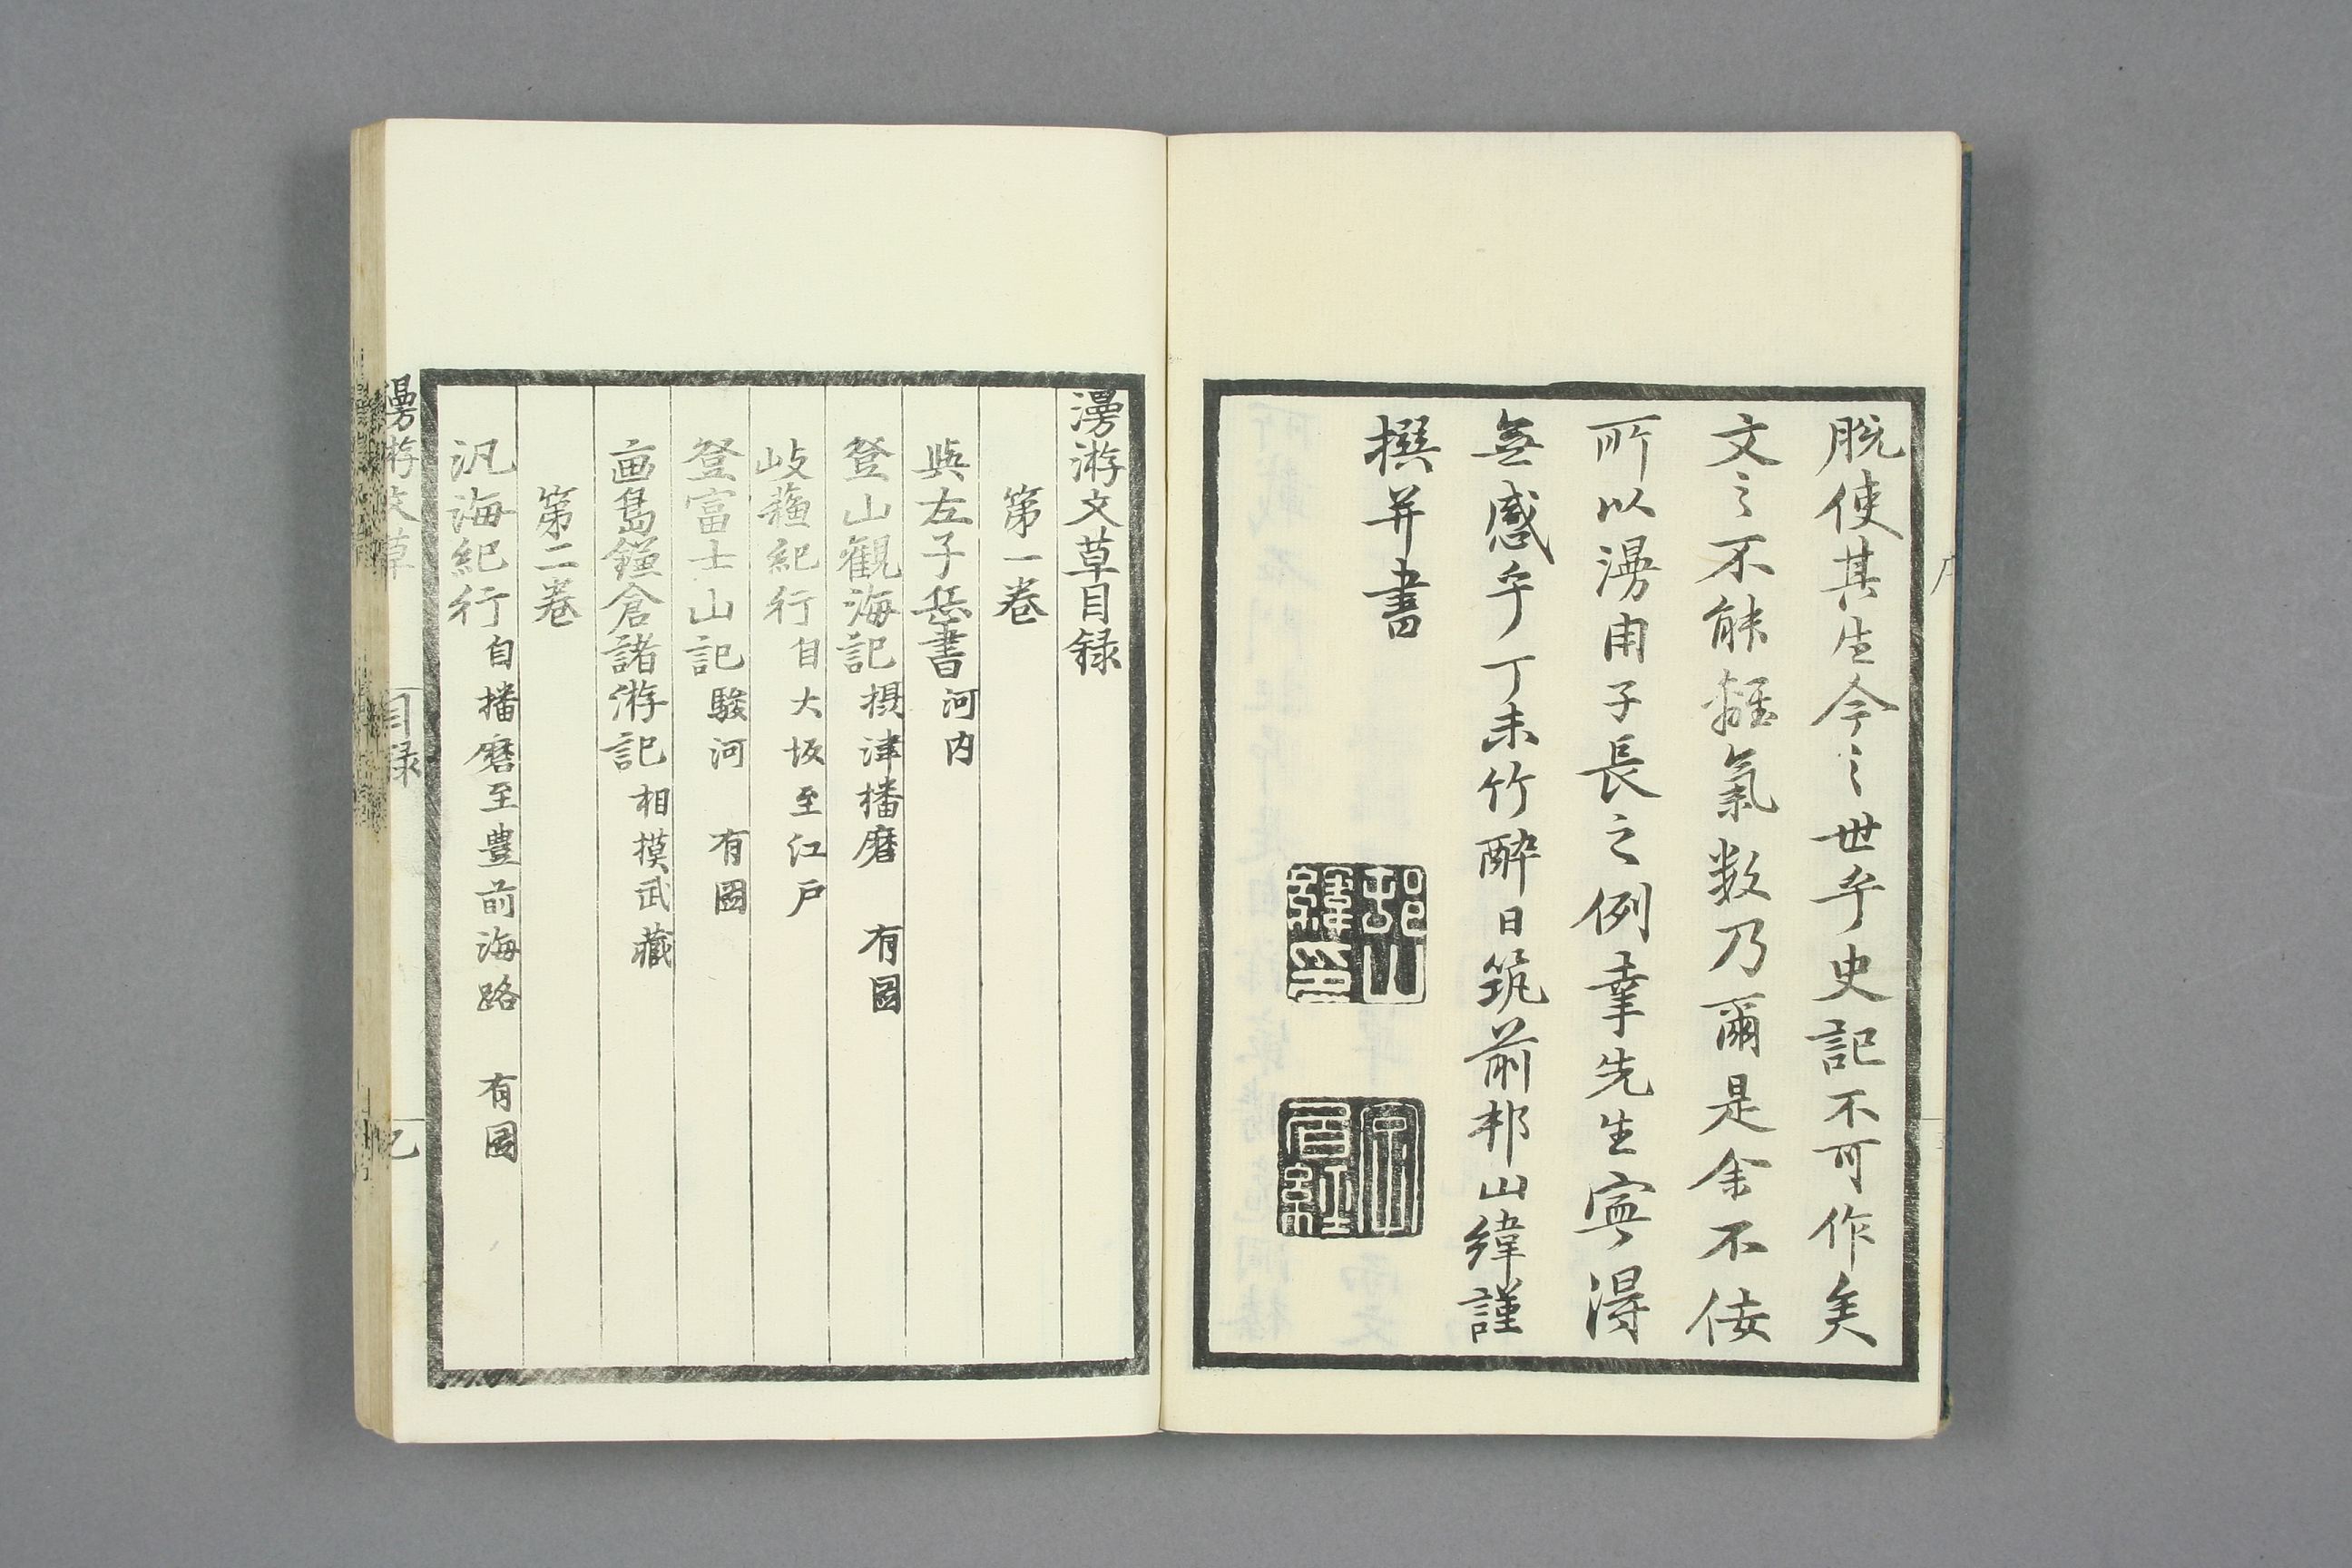 脱使其生今之世乎史記不可作矣
文之不能離氣数乃爾是余不佞
所以漫用子長之例幸先生寧得
無感乎丁未竹酔日筑前邨山緯謹
撰并書
邨山緯印
漫游文草目録
第一巻
與左子岳書 河内
登山観海記 摂津播磨 有圖
岐蘓紀行 自大坂至江戸
登富士山記 駿河 有圖
画島鎌倉諸游記 相摸武藏
第二巻
汎海紀行 自播磨至豊前海路 有圖
漫游文草 目録